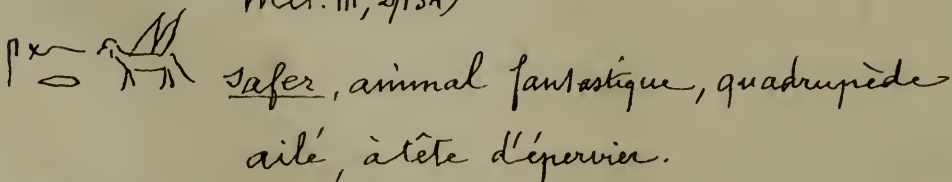 Mel. III, 2/137)
safer, animal fantastique, quadrupède
ailé, à tête d'épervier.